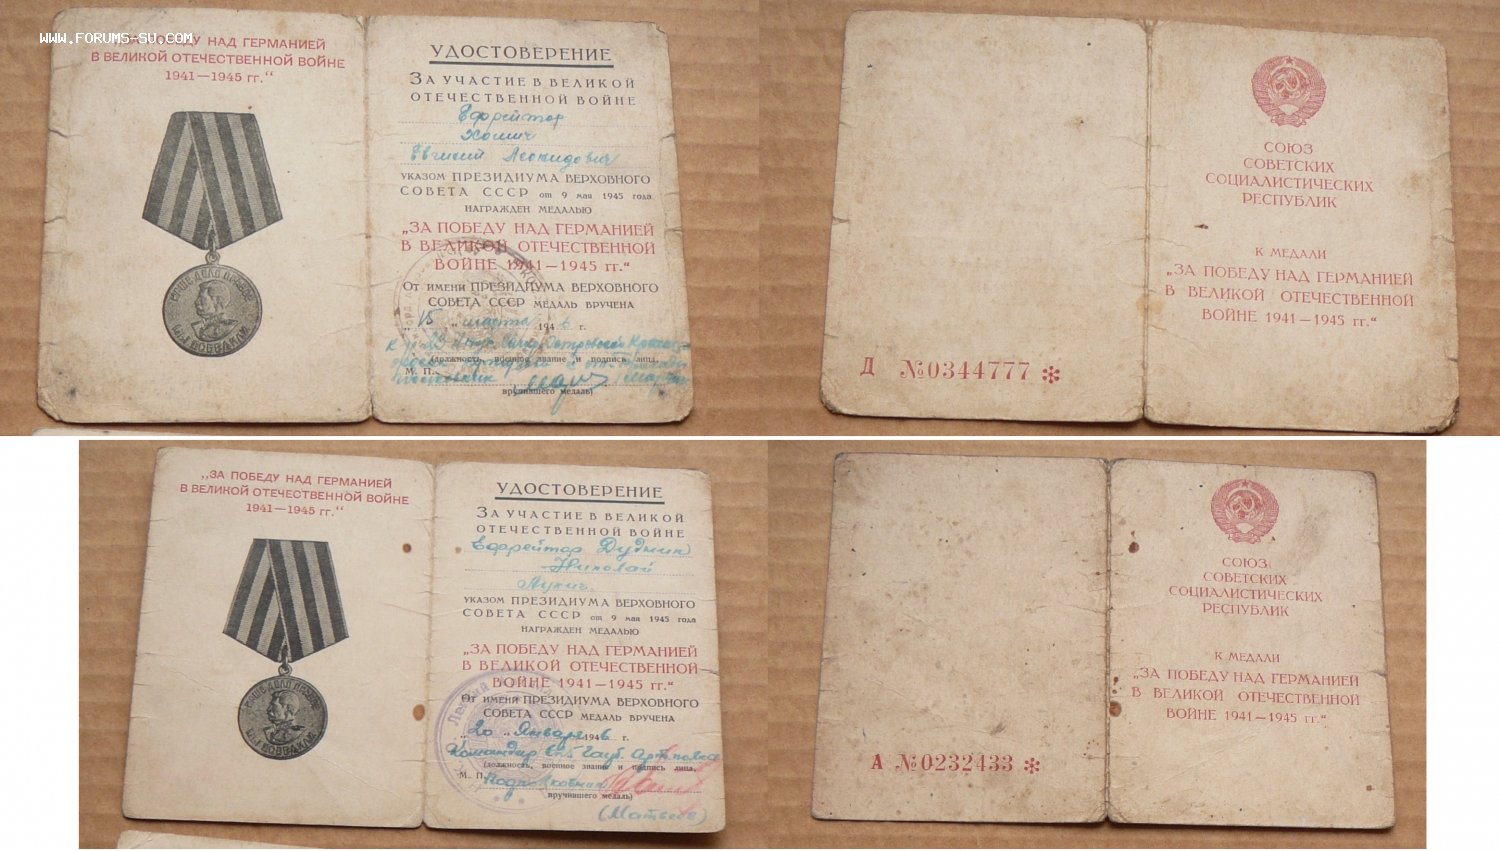 www.forums-su.com
„ЗА ПОБЕДУ НАД ГЕРМАНИЕЙ
В ВЕЛИКОЙ ОТЕЧЕСТВЕННОЙ ВОЙНЕ
1941—1945 гг.“
НАШЕ ДЕЛО ПРАВОЕ
МЫ ПОБЕДИЛИ
УДОСТОВЕРЕНИЕ
ЗА УЧАСТИЕ В ВЕЛИКОЙ
ОТЕЧЕСТВЕННОЙ ВОЙНЕ
Ефрейтор
Хомич
Евгений Леонидович
УКАЗОМ ПРЕЗИДИУМА ВЕРХОВНОГО
СОВЕТА СССР от 9 мая 1945 года
НАГРАЖДЕН МЕДАЛЬЮ
„ЗА ПОБЕДУ НАД ГЕРМАНИЕЙ
В ВЕЛИКОЙ ОТЕЧЕСТВЕННОЙ
ВОЙНЕ 1941—1945 гг.“
От имени ПРЕЗИДИУМА ВЕРХОВНОГО
СОВЕТА СССР МЕДАЛЬ ВРУЧЕНА
„15“ марта 1946 г.
(должность, военное звание и подпись лица,
М. П.
вручившего медаль)
Д №0344777 *
СОЮЗ
СОВЕТСКИХ
СОЦИАЛИСТИЧЕСКИХ
РЕСПУБЛИК
К МЕДАЛИ
„ЗА ПОБЕДУ НАД ГЕРМАНИЕЙ
В ВЕЛИКОЙ ОТЕЧЕСТВЕННОЙ
ВОЙНЕ 1941—1945 гг.“
„ЗА ПОБЕДУ НАД ГЕРМАНИЕЙ
В ВЕЛИКОЙ ОТЕЧЕСТВЕННОЙ ВОЙНЕ
1941—1945 гг.“
НАШЕ ДЕЛО ПРАВОЕ
МЫ ПОБЕДИЛИ
УДОСТОВЕРЕНИЕ
ЗА УЧАСТИЕ В ВЕЛИКОЙ
ОТЕЧЕСТВЕННОЙ ВОЙНЕ
Ефрейтор Дудник
Николай
Лукич
УКАЗОМ ПРЕЗИДИУМА ВЕРХОВНОГО
СОВЕТА СССР от 9 мая 1945 года
НАГРАЖДЕН МЕДАЛЬЮ
„ЗА ПОБЕДУ НАД ГЕРМАНИЕЙ
В ВЕЛИКОЙ ОТЕЧЕСТВЕННОЙ
ВОЙНЕ 1941—1945 гг.“
От имени ПРЕЗИДИУМА ВЕРХОВНОГО
СОВЕТА СССР МЕДАЛЬ ВРУЧЕНА
„20“ Января 1946 г.
Командир Гауб. Артполка
(должность, военное звание и подпись лица,
М. П. Подполковник
вручившего медаль)
(Матвеев)
А №0232433 *
СОЮЗ
СОВЕТСКИХ
СОЦИАЛИСТИЧЕСКИХ
РЕСПУБЛИК
К МЕДАЛИ
„ЗА ПОБЕДУ НАД ГЕРМАНИЕЙ
В ВЕЛИКОЙ ОТЕЧЕСТВЕННОЙ
ВОЙНЕ 1941—1945 гг.“